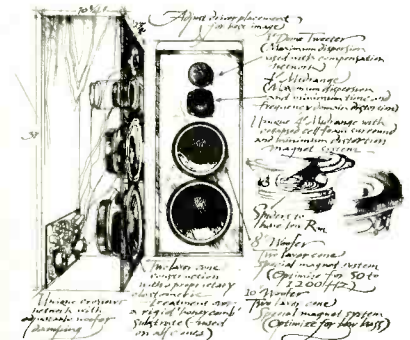 Adjust driver placement
for best image
1" Dome Tweeter
(Maximum dispersion
used with compensation
network)
4" Midrange
(Maximum dispersion
and minimum time and
frequency domain distortion)
Unique 4" Midrange with
cell foam surround
and minimum distortion
magnet system
Spiders to
have low Rm
8" Woofer
Two layer cone
Special magnet system
(Optimize for 50 to
1200 Hz)
10" Woofer
Two layer cone
Special magnet system
(Optimize for low bass)
Two layer cone
construction
with proprietary
elastometric
treatment over
a rigid "honeycomb"
substrate (used
on all cones)
Unique crossover
network with
adjustable woofer
damping